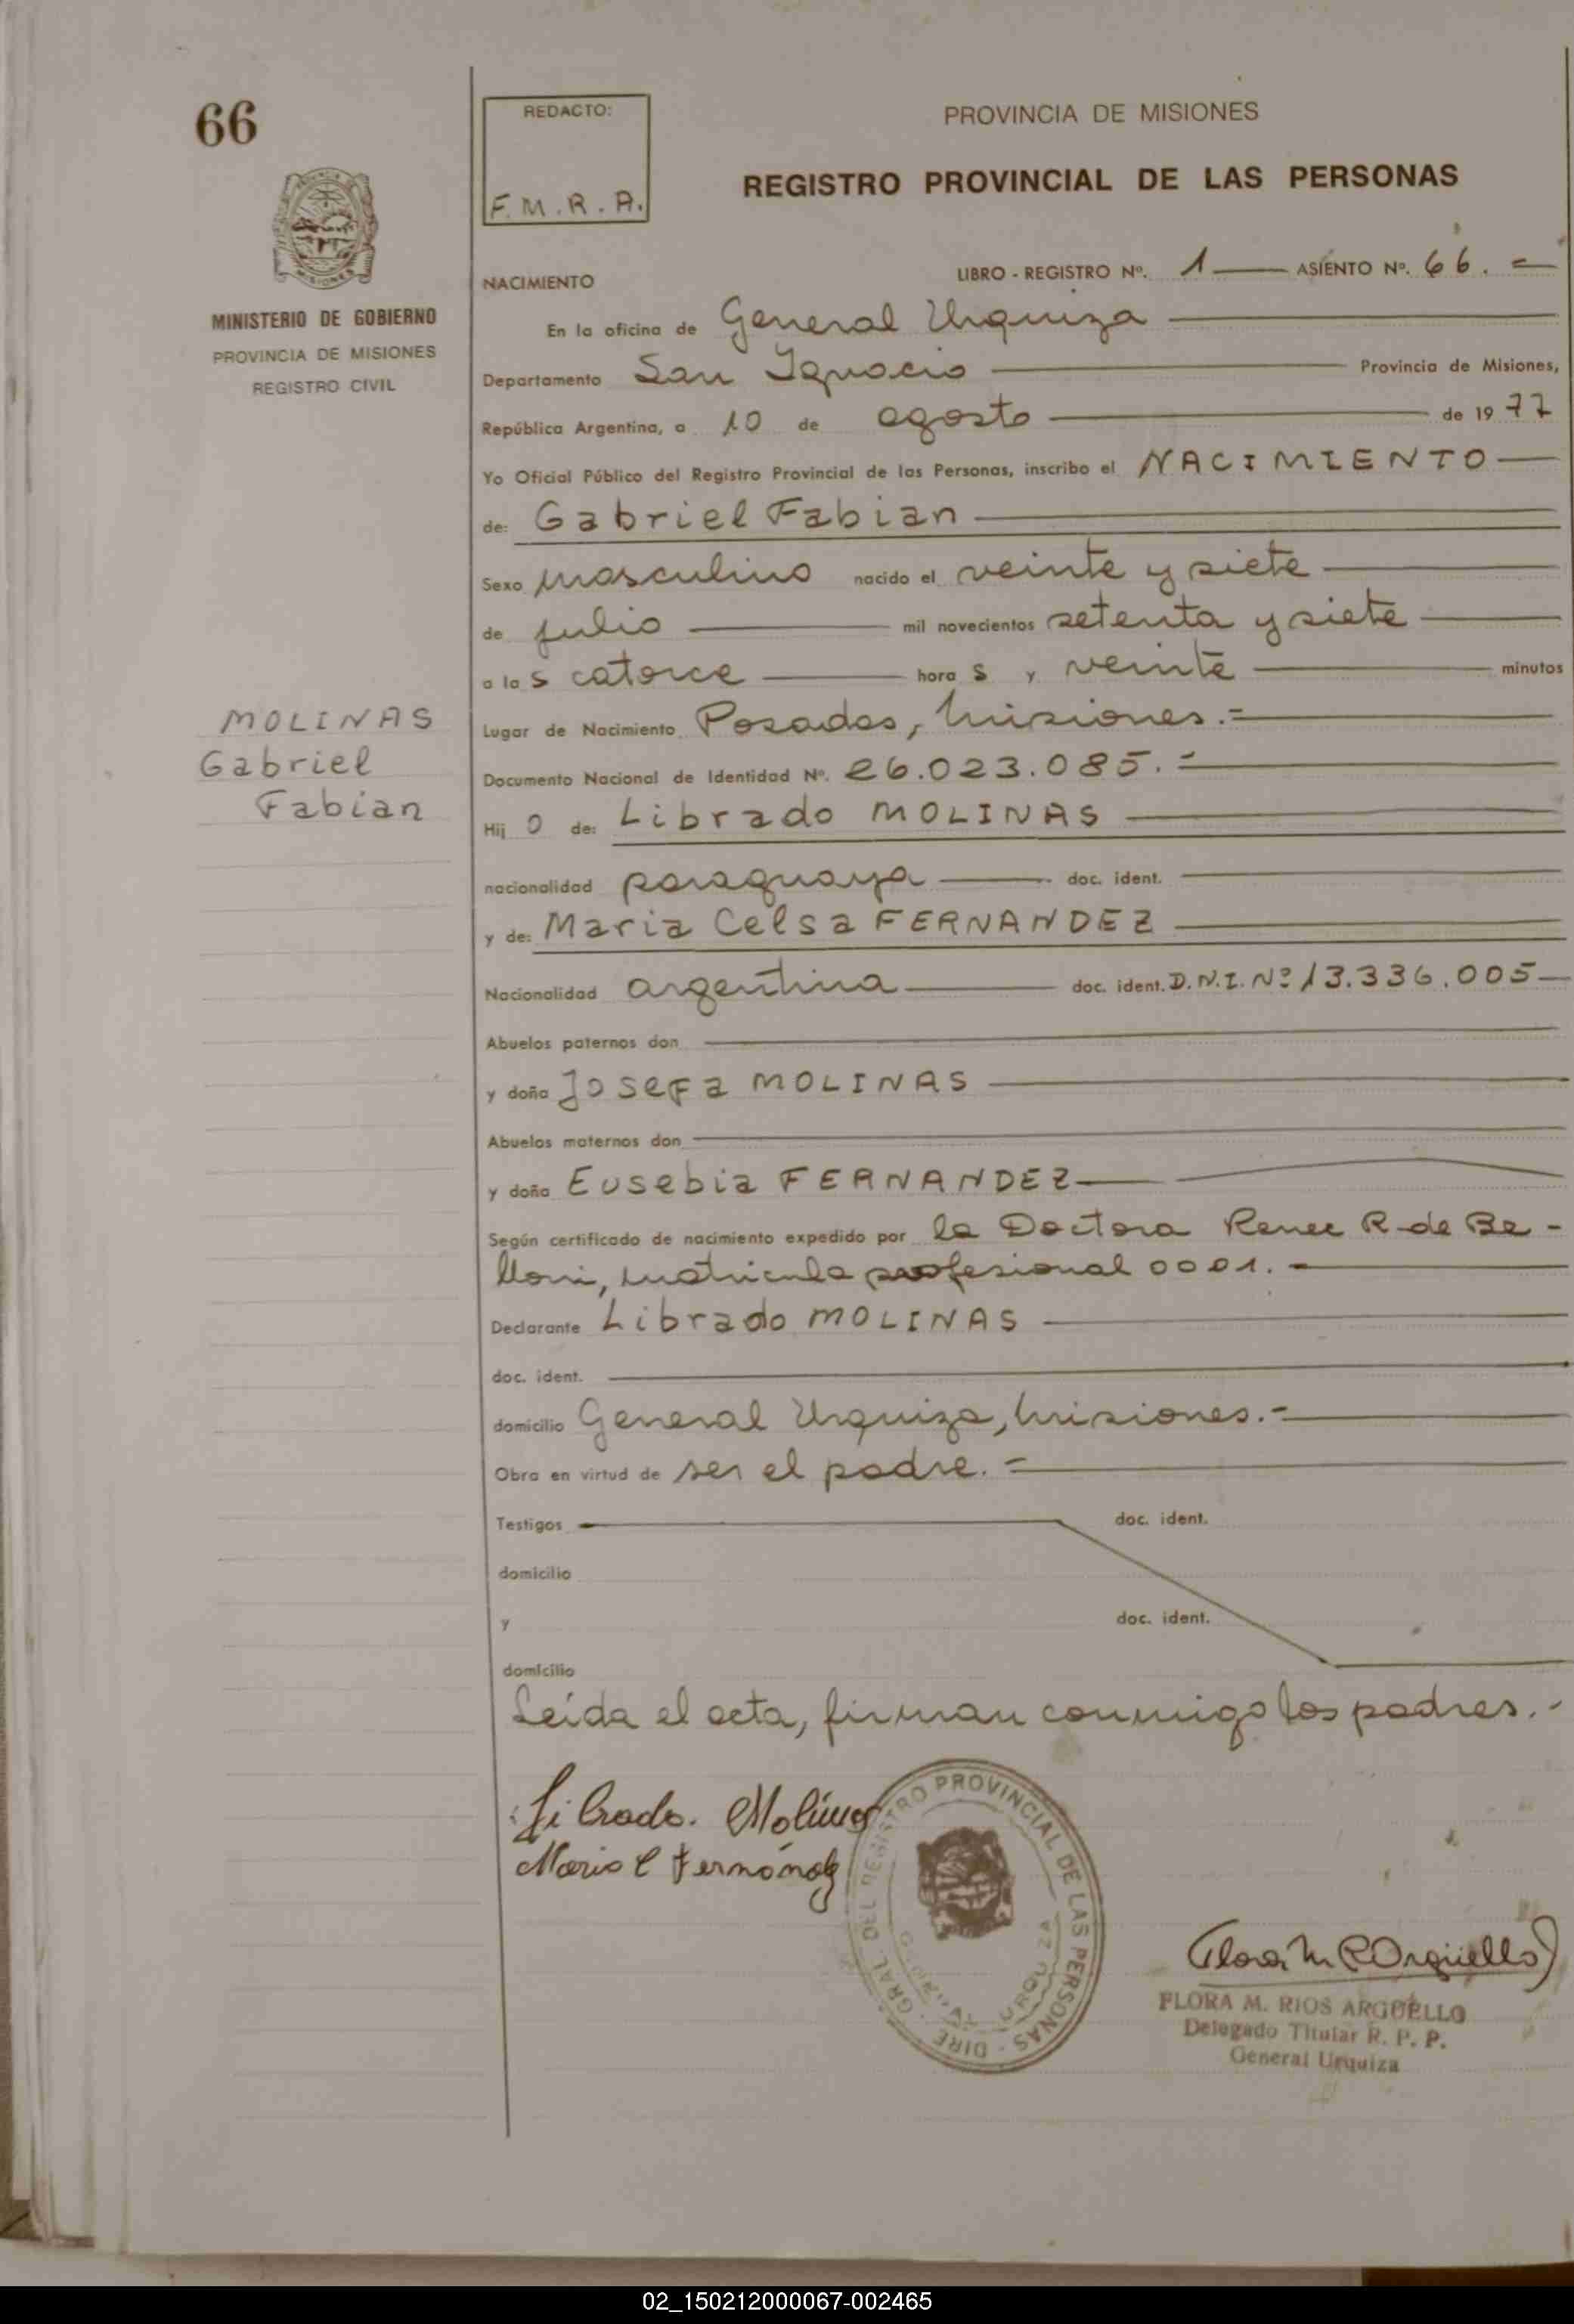 66
REDACTO:
F. M. R. A.
PROVINCIA DE MISIONES
REGISTRO PROVINCIAL DE LAS PERSONAS
MINISTERIO DE GOBIERNO
PROVINCIA DE MISIONES
REGISTRO CIVIL
NACIMIENTO LIBRO - REGISTRO Nº. 1 ASIENTO Nº. 66. =
En la oficina de General Urquiza
Departamento San Ignacio Provincia de Misiones,
República Argentina, a 10 de agosto de 1977
Yo Oficial Público del Registro Provincial de las Personas, inscribo el NACIMIENTO
de: Gabriel Fabian
Sexo masculino nacido el veinte y siete
de julio mil novecientos setenta y siete
a las catorce horas y veinte minutos
Lugar de Nacimiento Posadas, Misiones.=
Documento Nacional de Identidad Nº. 26.023.085.=
Hijo de: Librado MOLINAS
MOLINAS
Gabriel
Fabian
nacionalidad paraguaya doc. ident.
y de: Maria Celsa FERNANDEZ
Nacionalidad argentina doc. ident. D.N.I. Nº 13.336.005
Abuelos paternos don
y doña Josefa MOLINAS
Abuelos maternos don
y doña Eusebia FERNANDEZ
Según certificado de nacimiento expedido por la Doctora Renee R de Be-
lloni, matricula profesional 0001.
Declarante Librado MOLINAS
doc. ident.
domicilio General Urquiza, Misiones.=
Obra en virtud de ser el padre.=
Testigos doc. ident.
domicilio
y doc. ident.
domicilio
Leída el acta, firman conmigo los padres.-
Librado. Molinas
Maria C Fernández
DIRE. GRAL. DEL REGISTRO PROVINCIAL DE LAS PERSONAS
GENERAL URQUIZA
Flora M R Argüello
FLORA M. RIOS ARGÜELLO
Delegado Titular R. P. P.
General Urquiza
02_150212000067-002465